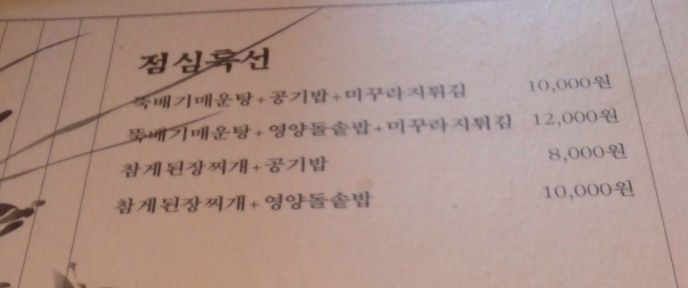 점심특선
뚝배기매운탕+공기밥+미꾸라지튀김 10,000원
뚝배기매운탕+영양돌솥밥+미꾸라지튀김 12,000원
참게된장찌개+공기밥 8,000원
참게된장찌개+영양돌솥밥 10,000원